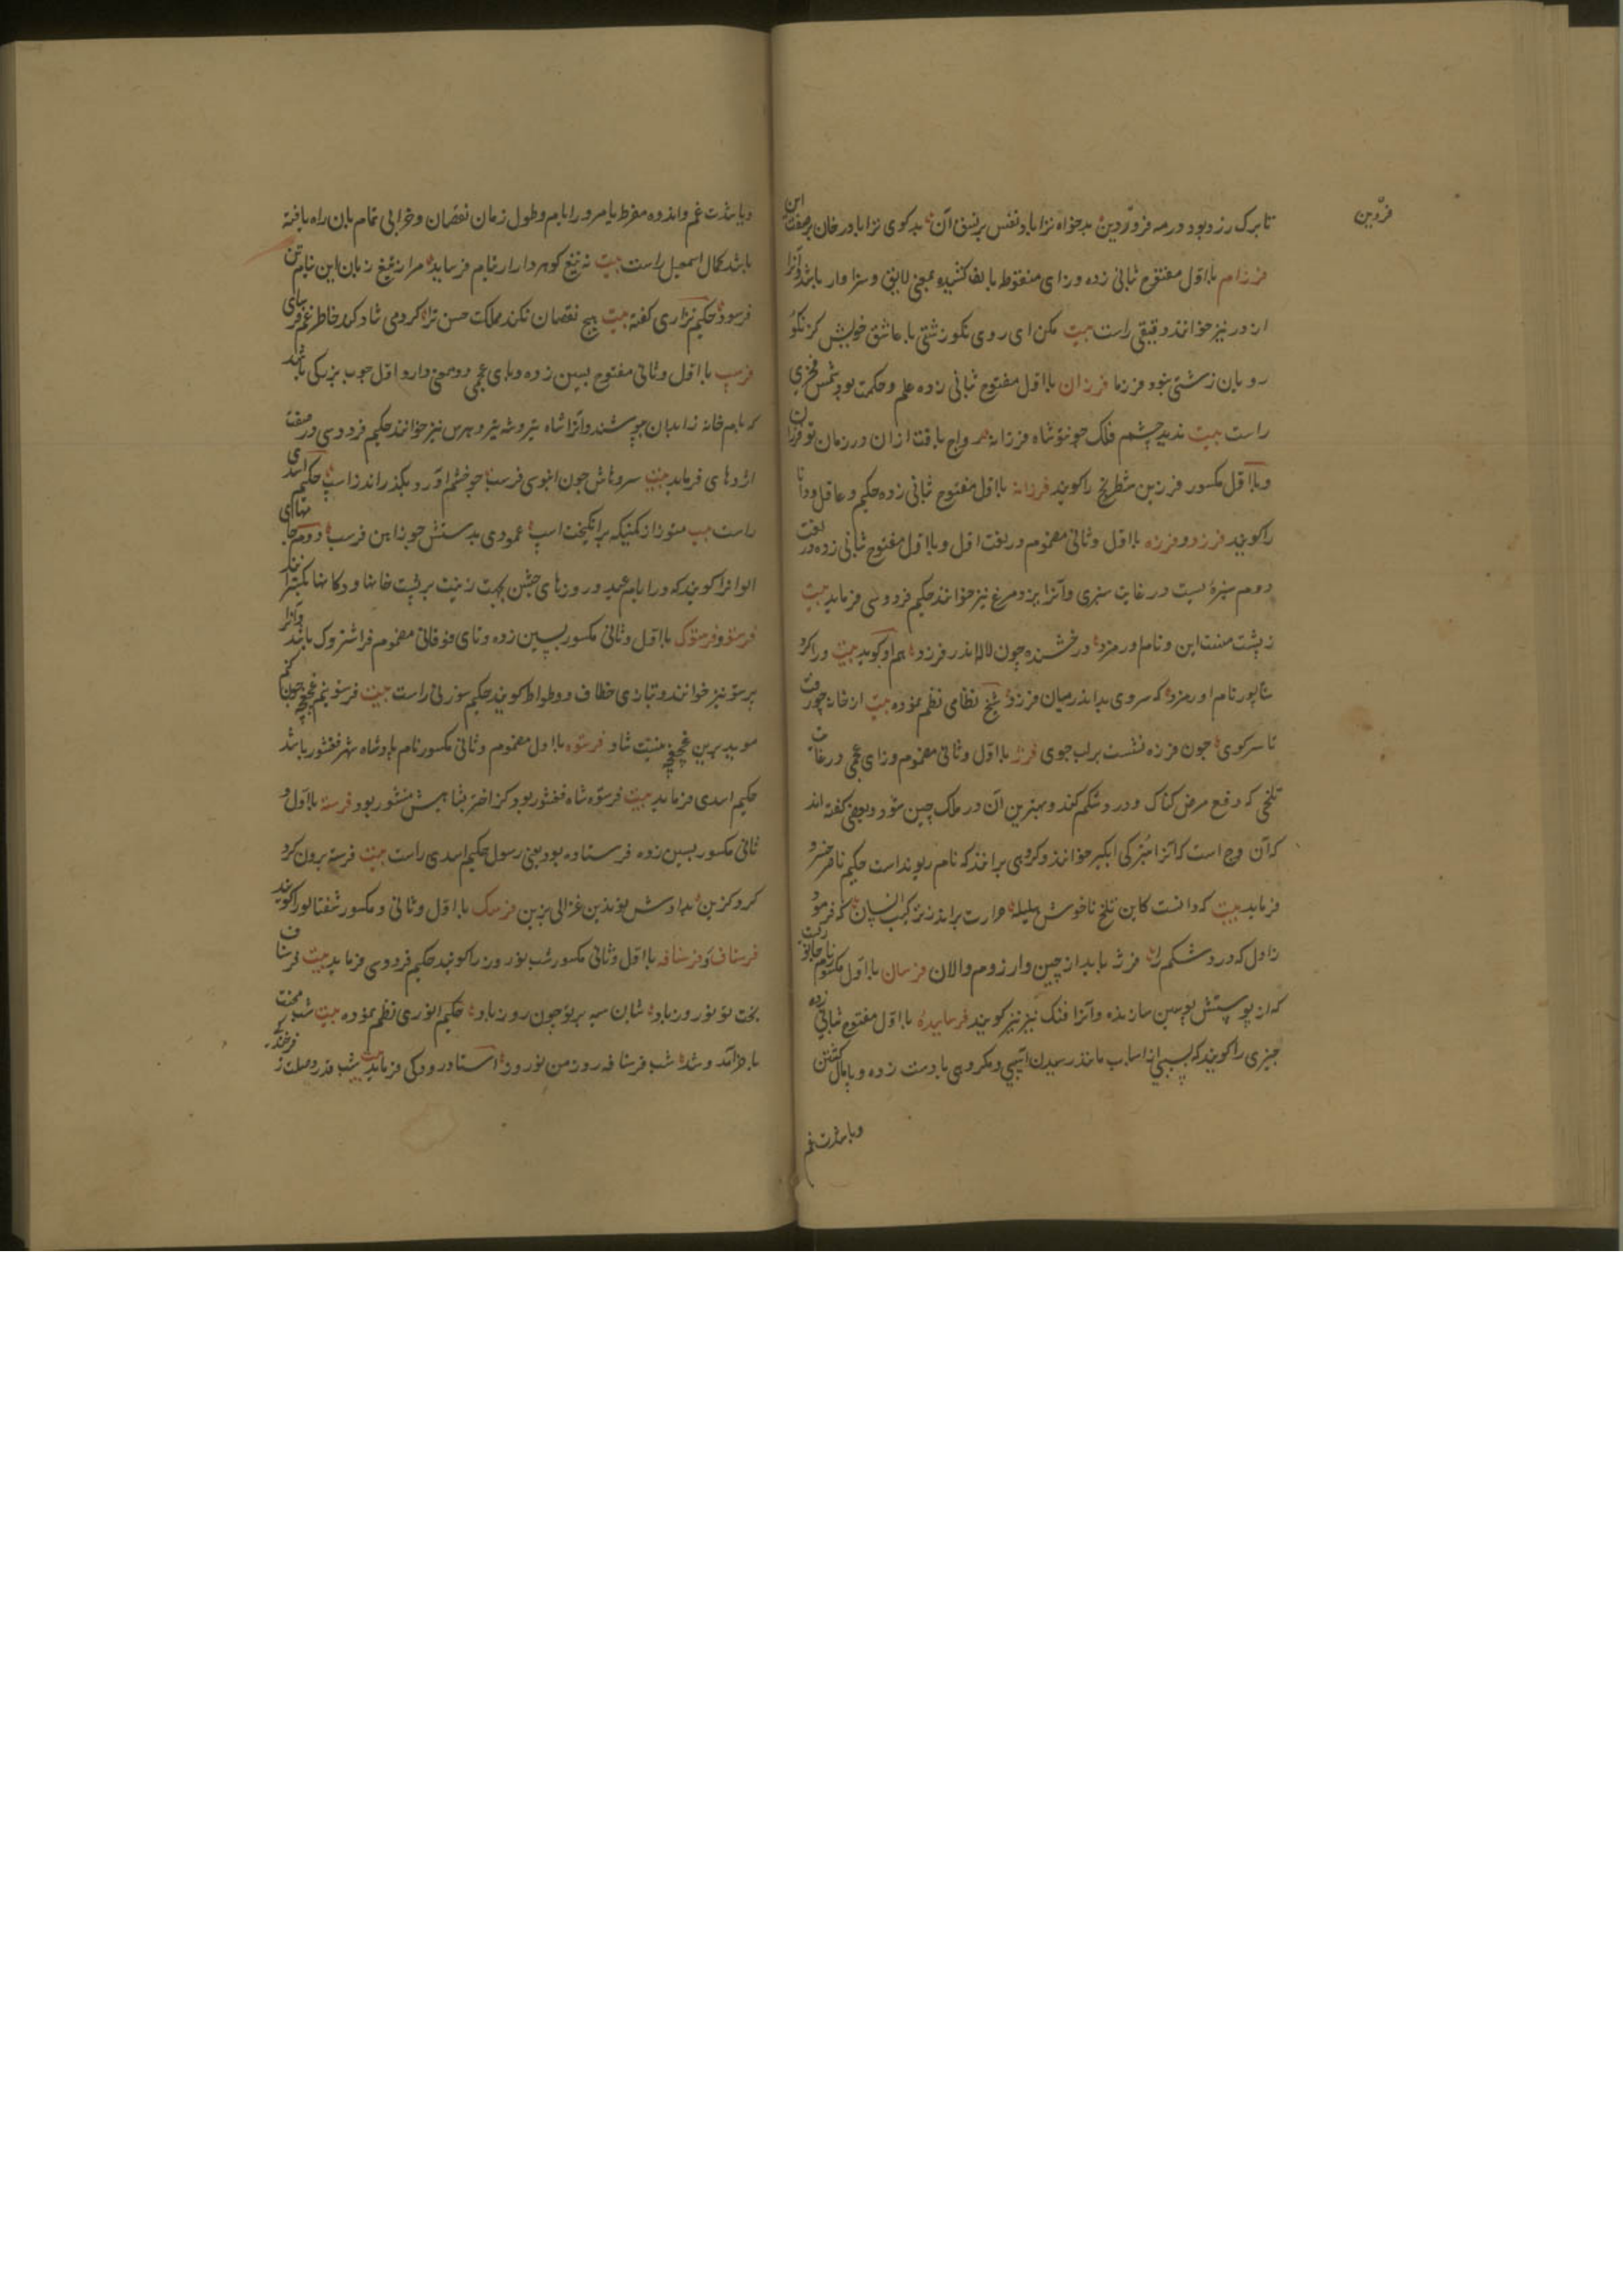 فرّدین
تا برک رز بود در مه فروردین بدخواه ترا باد نفس بر نسق آن بدکوی ترا باد رخان بر صفت این
فرزام با اول مفتوح ثبانی زده و زای منقوط بالف کشیده بمعنی لایق و سزاوار باشد وآنرا
اندر نیز خوانند دقیقی راست بیت مکن ای روی نکو زشتی با عاشق خویش کز نکو
رویان زشتی نبود فرزاما فرزان با اول مفتوح ثبانی زده علم و حکمت بود شمس فخری
راست بیت ندید چشم فلک چونتو شاه فرزانه رواج یافت ازان در زمان تو فرزان
و با اول مکسور فرزین شطرنج را کویند فرزانه با اول مفتوح ثبانی زده حکیم و عاقل و دانا
را کویند فرزد و فرزه با اول و ثانی مضموم در لغت اول و با اول مفتوح ثبانی زده در لغت
دوم سبزۀ بست در غایت سبزی وآنرا نیز خوانند حکیم فردوسی فرماید بیت
نام اورمزد درخشنده چون لاله اندر فرزد هم او کوید بیت ورا کرد
شاپور نام اورمزد که سروی بد اندر میان فرزد شیخ نظامی نظم نموده بیت از خانه چو رفت
تا سر کوی چون فرزه نشست بر لب جوی فرژ با اول و ثانی مضموم و زای عجمی در غایت
تلخی که دفع مرض کناک و درد شکم کند و بهترین آن در ملک چین شود و بعضی کفته اند
که آن وج است که آنرا خوانند و کروهی برانند که نام ریوند است حکیم ناصر خسرو
فرماید بیت که دانست کاین تلخ ناخوش هلیله حرارت براند ز ترکیب انسان که فرمود
ز اول که درد شکم را فرژ باید از چین و از روم والان فرسان با اول مکسور نام جانوریست
که از پوستش پوستین سازند وآنرا فنک نیز کویند فرساییده با اول مفتوح ثبانی زده
چیزی را کویند که بسببی از اسباب مانند رسیدن آسیبی و مکروهی یا دست زده و پایمال کشتن
و یا شدت غم
و یا شدت غم و اندوه مفرط یا مرور ایام و طول زمان نقصان و خرابی تمام بآن راه یافته
باشد کمال اسمعیل راست بیت نه تیغ کوهردار از نیام فرساید مرا ز تیغ زبان این نیام تن
فرسود حکیم نزاری کفته بیت هیچ نقصان نکند مملکت حسن ترا کر دمی شاد کند خاطر غم فرسای
فرسب با اول و ثانی مفتوح بسین زده و بای عجمی دو معنی دارد اول چوب بزرکی باشد
که بام خانه بدان پوشند وآنرا شاه تیر و شه تیر و نیز خوانند حکیم فردوسی در صفت
اژدهای فرماید بیت سروهاش چون آبنوسی فرسب چو خشم آورد بکذراند ز اسب حکیم اسدی
راست بیت ستون از کمینکه برانکیخت اسب عمودی بدستش چو زاین فرسب دوم جامهای
الوانرا کویند که در ایام عید و روزهای جشن بجهت زینت بر پشت خانها و دکانها بکسترانند
فرستو و فرستوک با اول و ثانی مکسور بسین زده و تای فوقانی مضموم فراشتروک باشد وآنرا
پرستو نیز خوانند و بتازی خطاف و وطواط کویند حکیم سوزنی راست بیت
فرستوه با اول مضموم و ثانی مکسور نام پادشاه شهر فغنشور باشد
حکیم اسدی فرماید بیت فرستوه شاه فغنشور بود منشور بود فرسته با اول و
ثانی مکسور بسین زده فرستاده بود یعنی رسول حکیم اسدی راست بیت فرسته برون کرد
کرد کزین فرسک با اول و ثانی مکسور شفتالو را کویند
فرسناف و فرسنافه با اول و ثانی مکسور شب نوروز را کویند حکیم فردوسی فرماید بیت فرسناف
بخت تو نوروز باد شبان سیه بر تو چون روز باد حکیم انوری نظم نموده بیت شب محنت
باخر آمد و شد شب فرسنافه روز من نوروز استاد رودکی فرماید بیت شب قدر وصلت ز فرخندکی